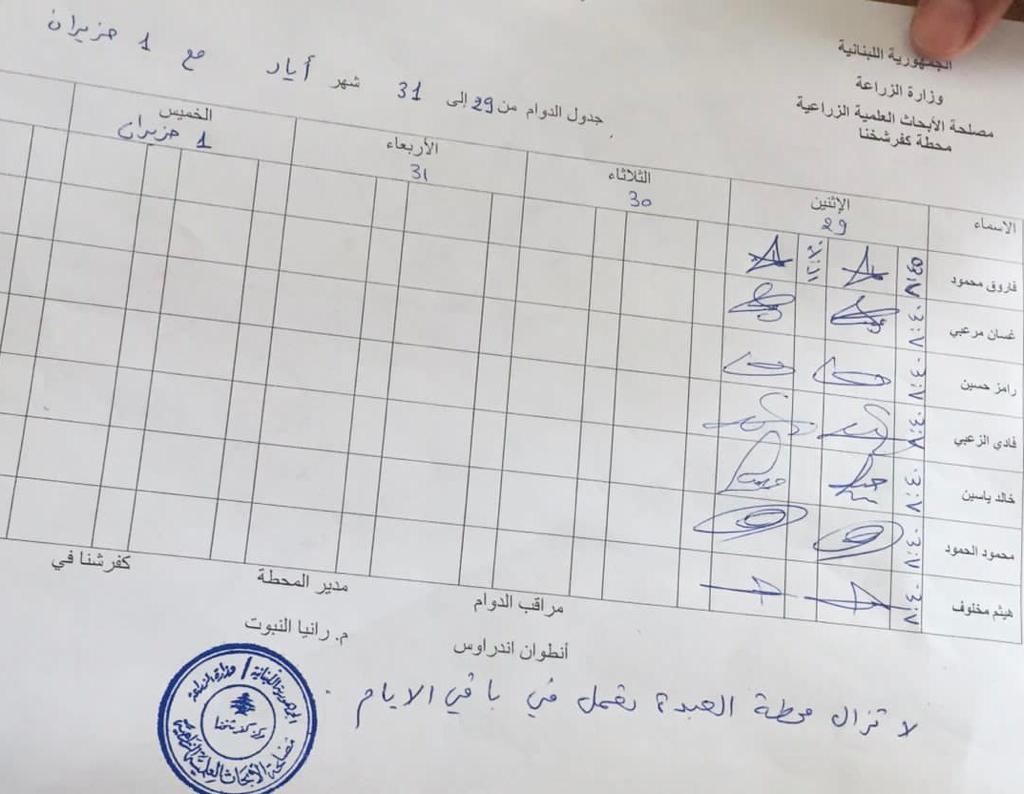 الجمهورية اللبنانية
وزارة الزراعة
مصلحة الأبحاث العلمية الزراعية
محطة كفرشخنا
جدول الدوام من 29 إلى 31 شهر أيار مع 1 حزيران
الاسماء الإثنين 29 الثلاثاء 30 الأربعاء 31 الخميس 1 حزيران
فاروق محمود ٨:٤٥
غسان مرعبي ٨:٤٠
رامز حسين ٨:٤٠
فادي الزعبي ٨:٤٠
خالد ياسين ٨:٤٠
محمود الحمود ٨:٤٠
هيثم مخلوف ٨:٤٠
مراقب الدوام مدير المحطة كفرشنا في
أنطوان اندراوس م. رانيا النبوت
لا تزال محطة العبدة تعمل في باقي الايام .
الجمهورية اللبنانية / وزارة الزراعة
مصلحة الأبحاث العلمية الزراعية